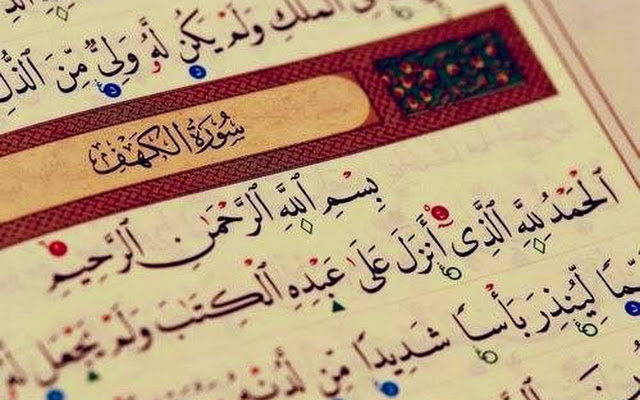 ٱلْمُلْكِ وَلَمْ يَكُن لَّهُۥ وَلِىٌّ مِّنَ ٱلذُّلِّ
سُورَةُ الكَهْفِ
بِسْمِ ٱللَّهِ ٱلرَّحْمَٰنِ ٱلرَّحِيمِ
ٱلْحَمْدُ لِلَّهِ ٱلَّذِىٓ أَنزَلَ عَلَىٰ عَبْدِهِ ٱلْكِتَٰبَ وَلَمْ يَجْعَل
لِّيُنذِرَ بَأْسًا شَدِيدًا مِّن لَّدُنْهُ